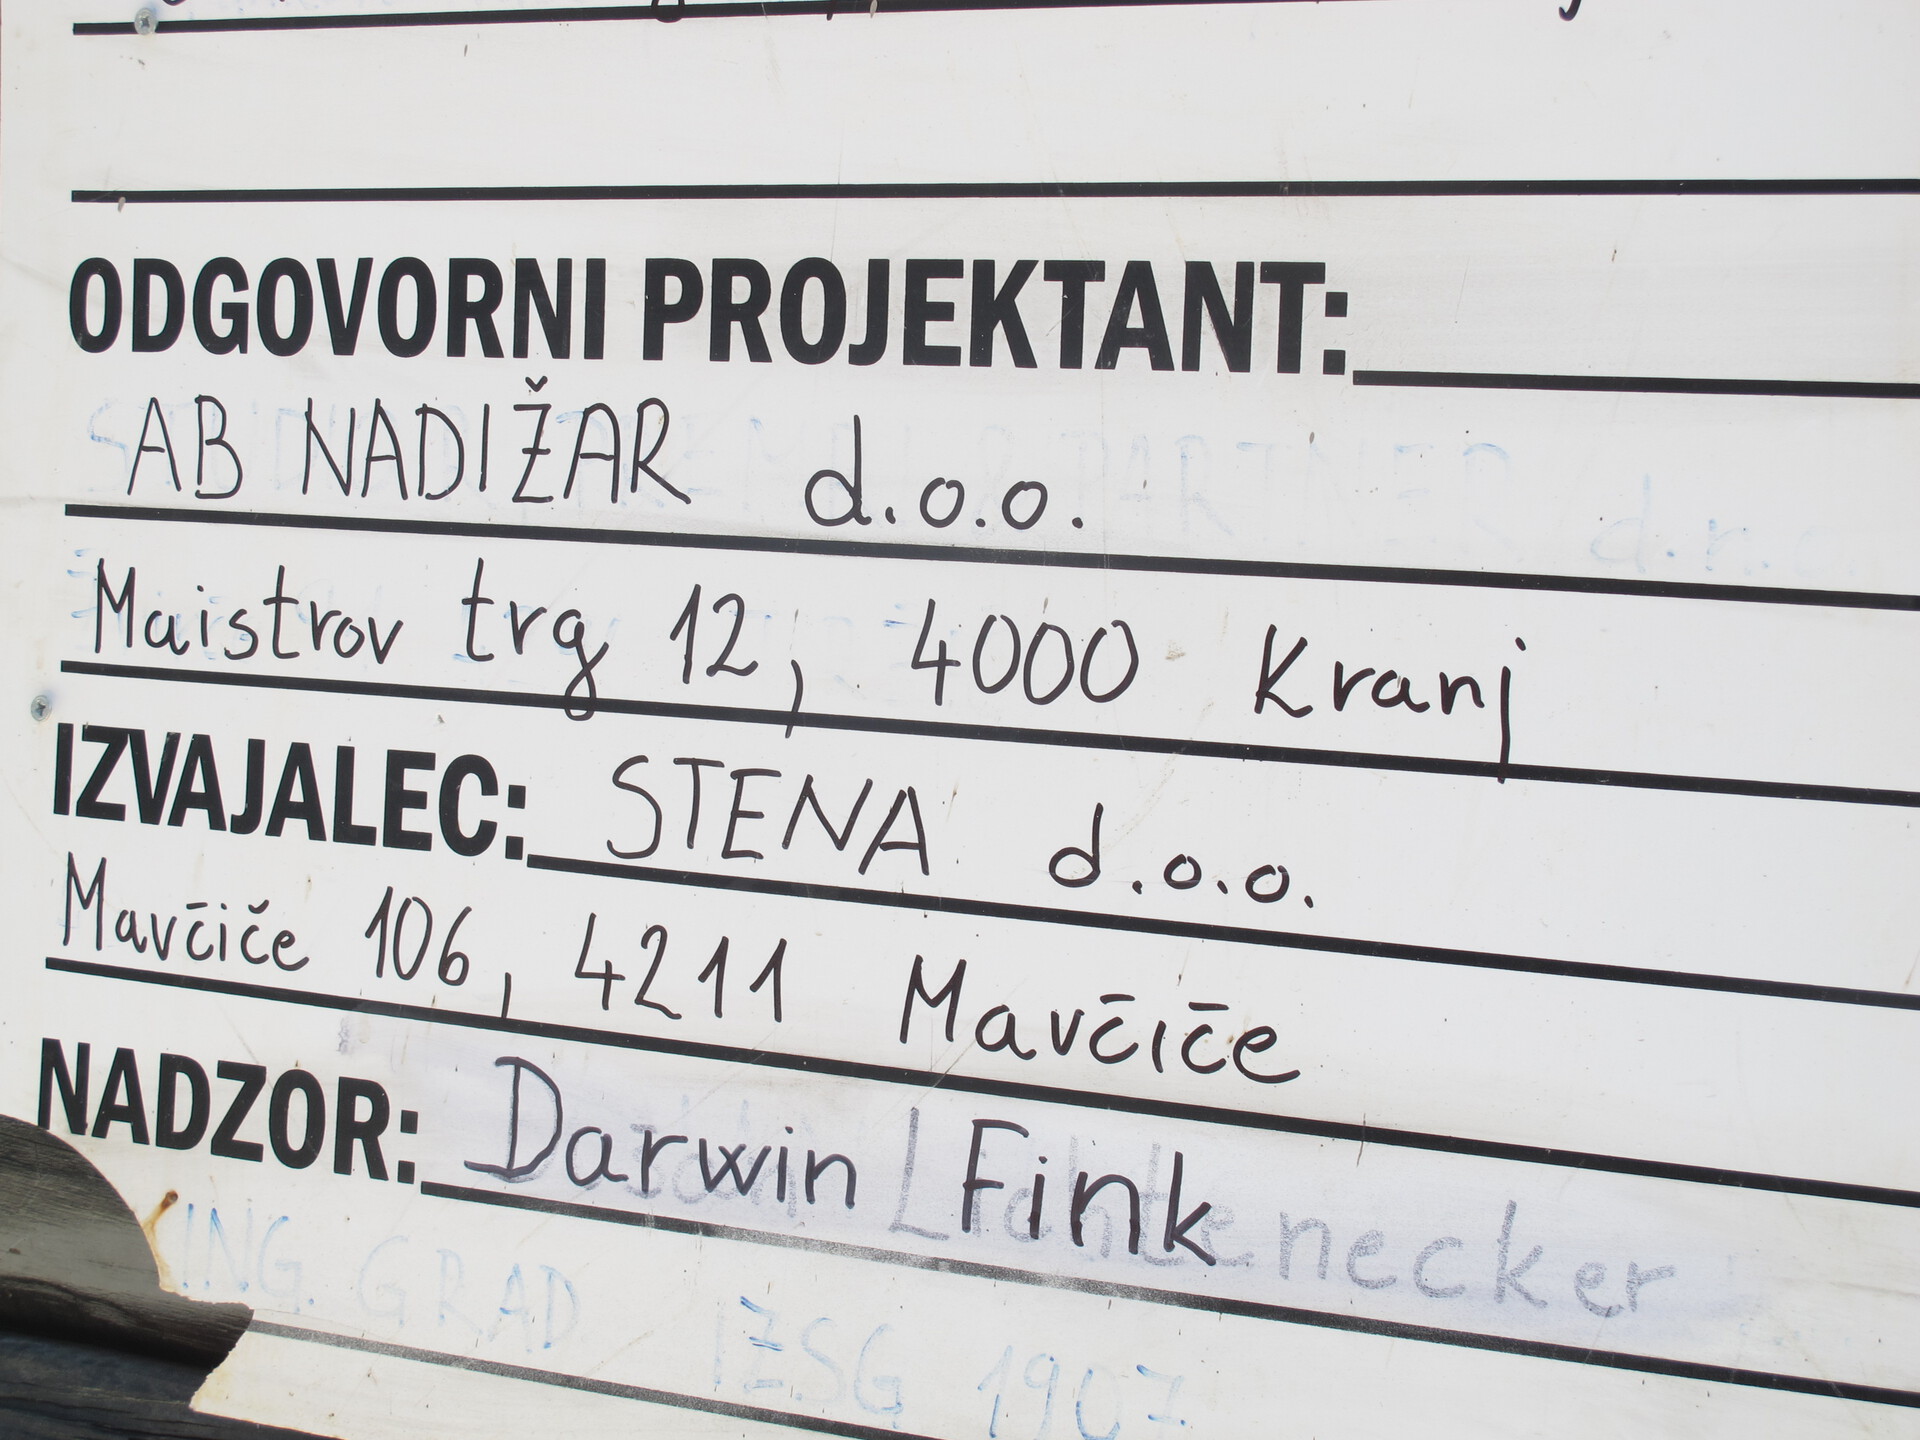 ODGOVORNI PROJEKTANT:
AB NADIŽAR d.o.o.
Maistrov trg 12, 4000 Kranj
IZVAJALEC: STENA d.o.o.
Mavčiče 106, 4211 Mavčiče
NADZOR: Darwin Fink
necker
ING. GRAD IZSG 1907